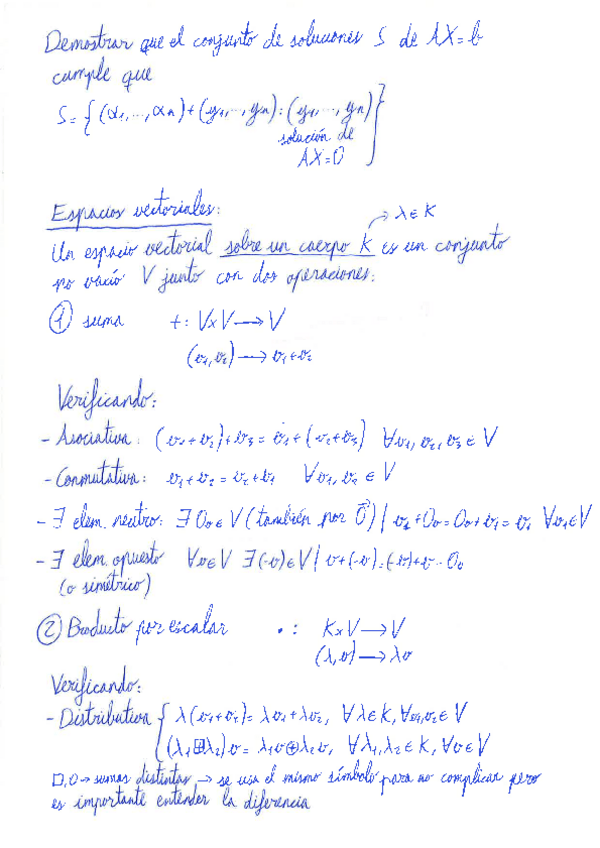 Demostrar que el conjunto de soluciones S de AX=b
cumple que
S={(α₁,...,αn)+(y₁,...,yn):(y₁,...,yn)}
solución de
AX=0
Espacios vectoriales:
→ λ∈K
Un espacio vectorial sobre un cuerpo K es un conjunto
no vacío V junto con dos operaciones:
① suma +: V×V→V
(v₁,v₂)→v₁+v₂
Verificando:
- Asociativa: (v₁+v₂)+v₃=v₁+(v₂+v₃) ∀v₁,v₂,v₃∈V
- Conmutativa: v₁+v₂=v₂+v₁ ∀v₁,v₂∈V
- ∃ elem. neutro: ∃0ᵥ∈V (también por 0⃗) | v₁+0ᵥ=0ᵥ+v₁=v₁ ∀v₁∈V
- ∃ elem. opuesto ∀v∈V ∃(-v)∈V | v+(-v)=(-v)+v=0ᵥ
(o simétrico)
② Producto por escalar •: K×V→V
(λ,v)→λv
Verificando:
- Distributiva { λ(v₁+v₂)=λv₁+λv₂, ∀λ∈K, ∀v₁,v₂∈V
(λ₁⊞λ₂)v=λ₁v⊕λ₂v, ∀λ₁,λ₂∈K, ∀v∈V
□,○→sumas distintas→se usa el mismo símbolo para no complicar pero
es importante entender la diferencia